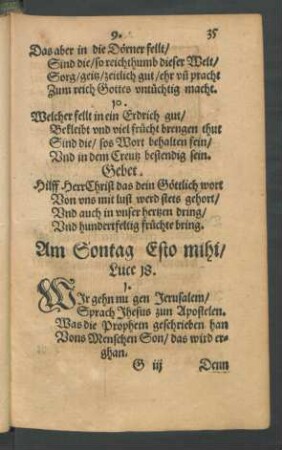 9. 35
Das aber in die Dörner fellt/
Sind die/ so reichthumb dieser Welt/
Sorg/ geitz/ zeitlich gut/ ehr vñ pracht
Zum reich Gottes vntüchtig macht.
10.
Welcher fellt in ein Erdrich gut/
Bekleibt vnd viel frücht brengen thut
Sind die/ sos Wort behalten fein/
Vnd in dem Creutz bestendig sein.
Gebet.
Hilff HErr Christ das dein Göttlich wort
Von vns mit lust werd stets gehort/
Vnd auch in vnser hertzen dring/
Vnd hundertfeltig früchte bring.
Am Sontag Esto mihi/
Luce 18.
1.
WIr gehn nu gen Jerusalem/
Sprach Jhesus zun Apostelen.
Was die Propheten geschrieben han
Vons Menschen Son/ das wird er-
ghan.
G iij Denn